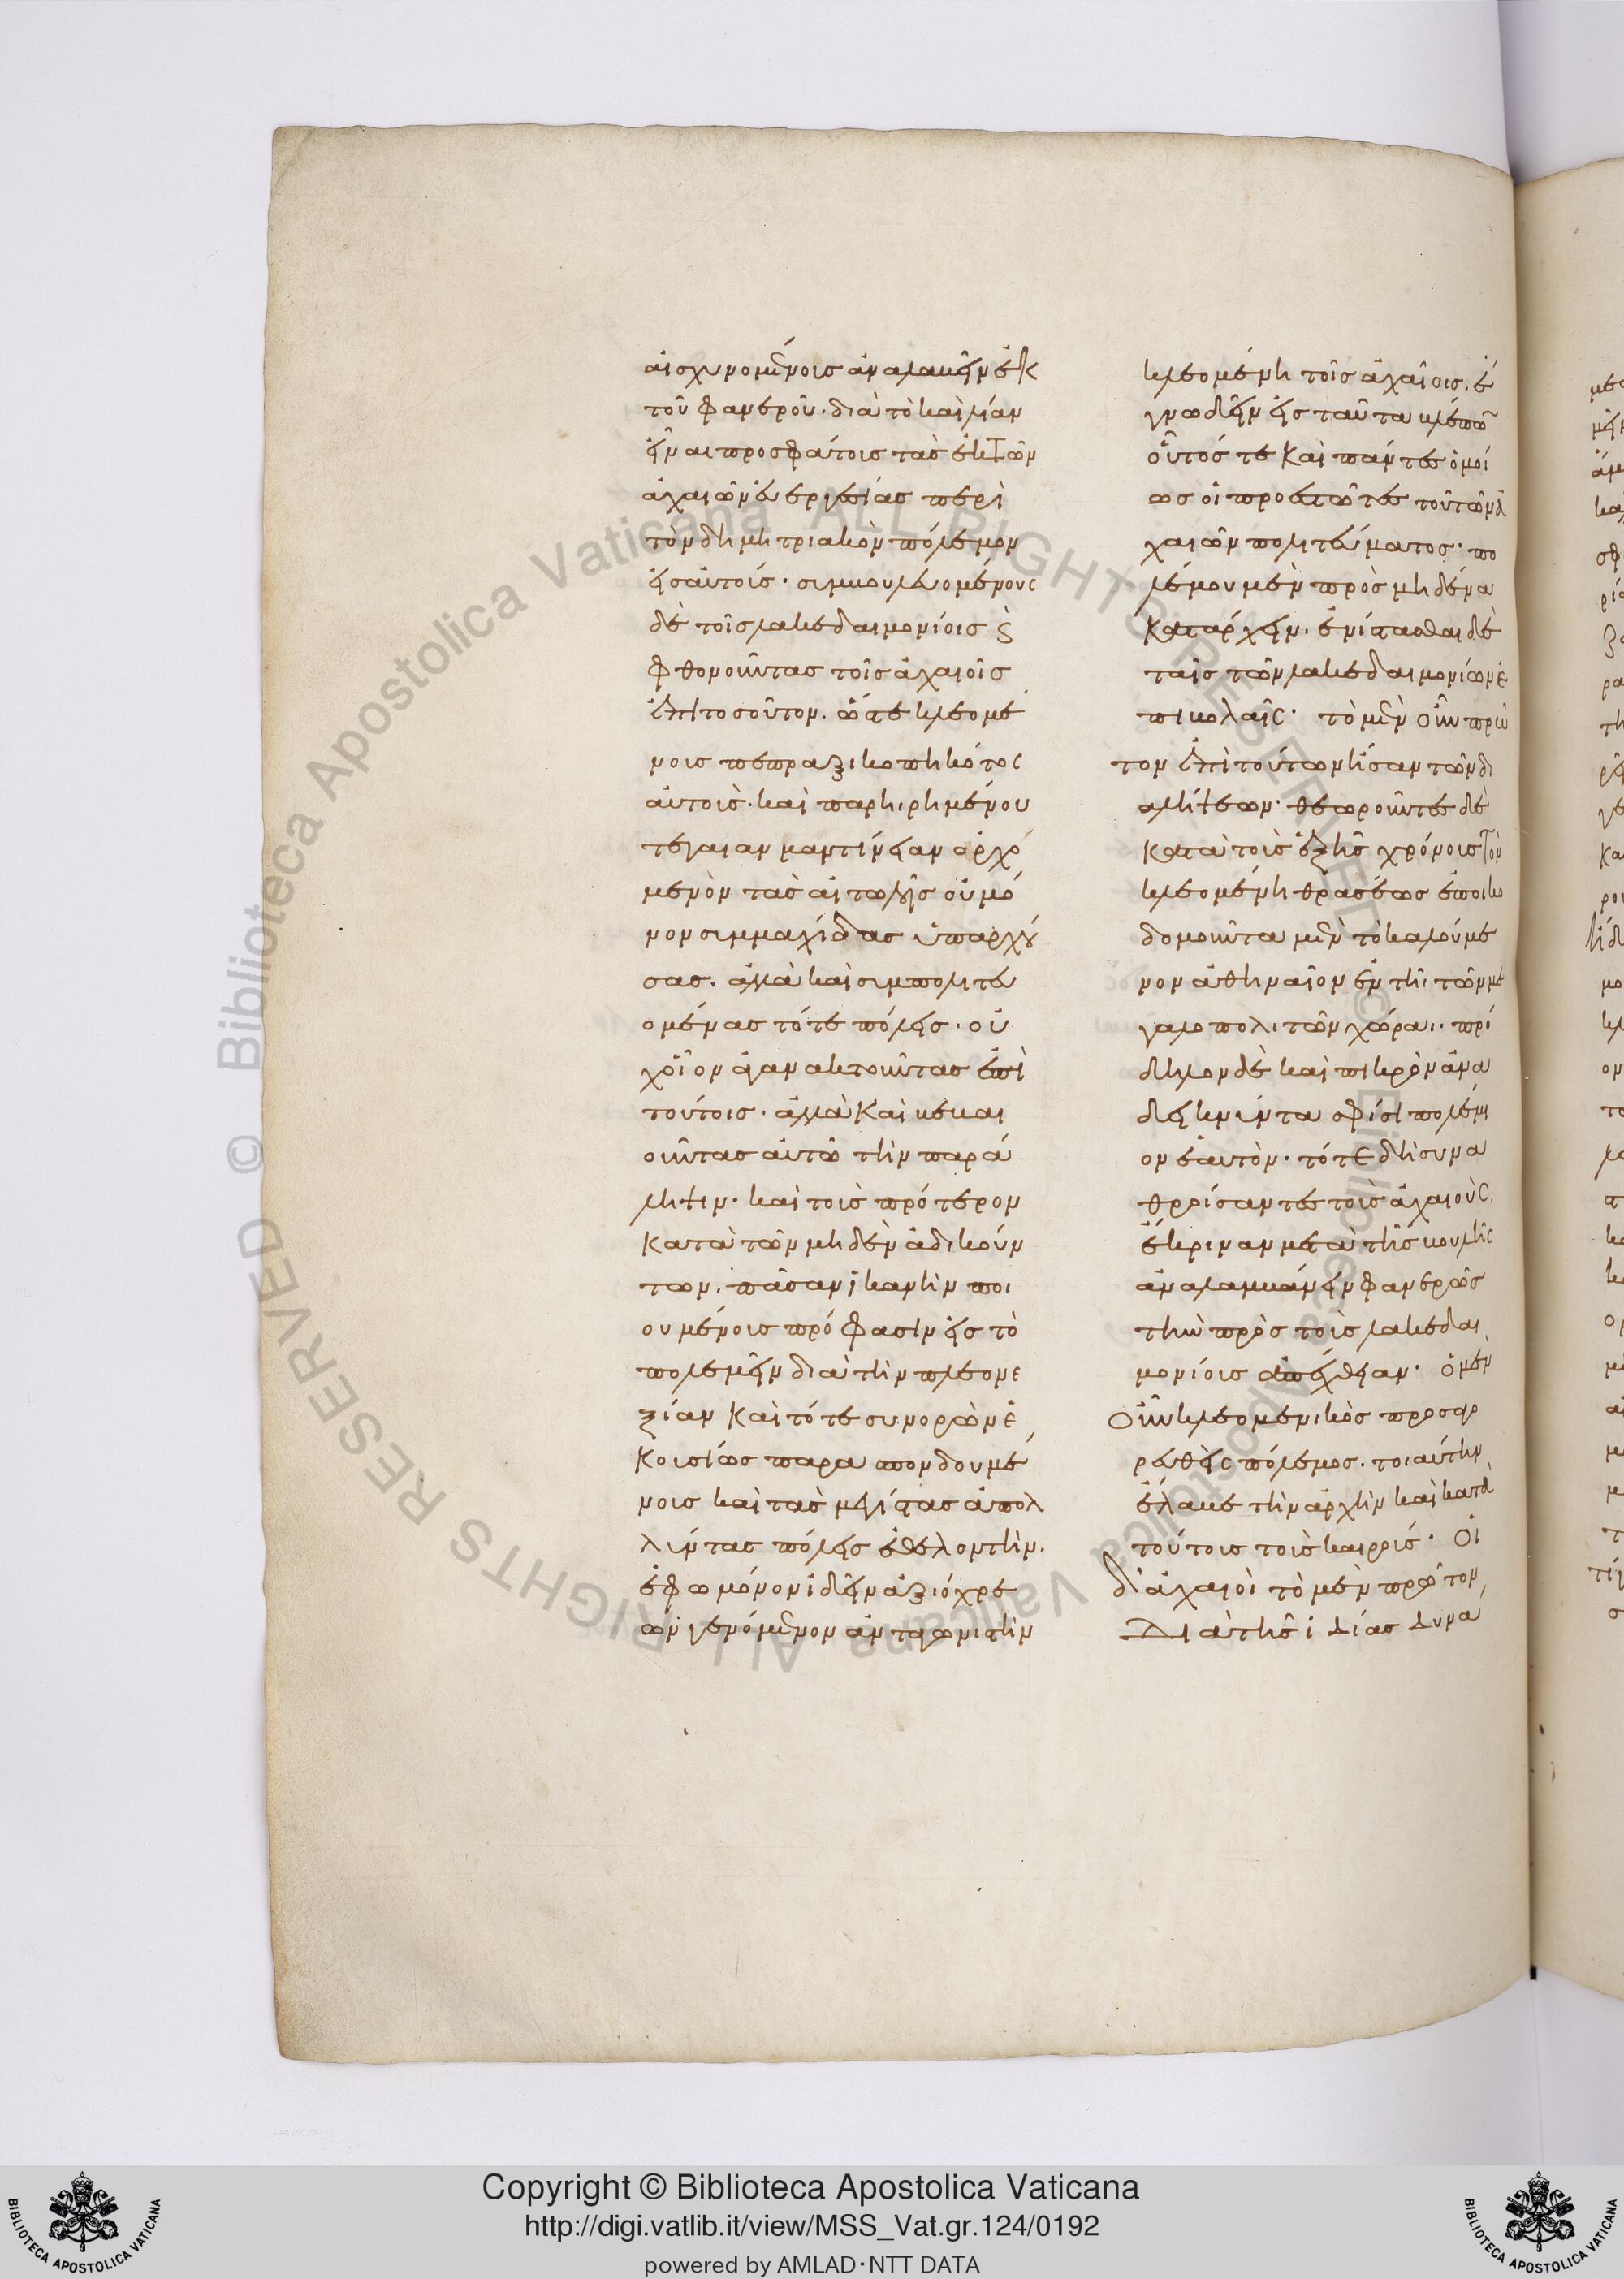 αἰσχυνομένους ἀναλαβεῖν ἐκ
τοῦ φανεροῦ. διὰ τὸ καὶ λίαν
εἶναι προσφάτους τὰς ἐκ τῶν
ἀχαιῶν εὐεργεσίας περὶ
τὸν δημητριακὸν πόλεμον
εἰς αὐτούς. συμβουλευομένους
δὲ τοῖς λακεδαιμονίοις καὶ
φθονοῦντας τοῖς ἀχαιοῖς
ἐπὶ τοσοῦτον. ὥστε κλεομέ
νους πεπραξικοπηκότος
αὐτοὺς. καὶ παρηιρημένου
τεγέαν μαντίνειαν ὀρχο
μενὸν τὰς αἰτωλοῖς οὐ μό
νον συμμαχίδας ὑπαρχού
σας. ἀλλὰ καὶ συμπολιτευ
ομένας τότε πόλεις. οὐ
χ οἷον ἀγανακτοῦντας ἐπὶ
τούτοις. ἀλλὰ καὶ βεβαι
οῦντας αὐτῶ τὴν παρά
ληψιν. καὶ τοὺς πρότερον
κατὰ τῶν μηδὲν ἀδικούν
των. πᾶσαν ἱκανὴν ποι
ουμένους πρόφασιν εἰς τὸ
πολεμεῖν διὰ τὴν πλεονε
ξίαν καὶ τότε συνορῶν ἑ
κουσίως παρασπονδουμέ
νους καὶ τὰς μεγίστας ἀπολ
λύντας πόλεις ἐθελοντὴν.
ἐφ ὧ μόνον ἰδεῖν ἀξιόχρε
ων γενόμενον ἀνταγωνιστὴν
κλεομένη τοῖς ἀχαιοῖς. ἔ
γνω δεῖν εἰς ταῦτα βλέπων
οὗτός τε καὶ πάντες ὁμοί
ως οἱ προεστῶτες τοῦ τῶν ἀ
χαιῶν πολιτεύματος. πο
λέμου μὲν πρὸς μηδένα
κατάρχειν. ἐνίστασθαι δὲ
ταῖς τῶν λακεδαιμονίων ἐ
πιβολαῖς. τὸ μὲν οὖν πρῶ
τον ἐπὶ τούτων ἦσαν τῶν δι
αλήψεων. θεωροῦντες δὲ
κατὰ τοὺς ἑξῆς χρόνους τὸν
κλεομένη θρασέως ἐποικο
δομοῦντα μὲν τὸ καλούμε
νον ἀθήναιον ἐν τῆι τῶν με
γαλοπολιτῶν χώραι. πρό
δηλον δὲ καὶ πικρὸν ἀνα
δεικνύντα σφίσι πολέμι
ον ἑαυτὸν. τότε δὴ συνα
θροίσαντες τοὺς ἀχαιοὺς.
ἔκριναν μετὰ τῆς βουλῆς
ἀναλαμβάνειν φανερῶς
τὴν πρὸς τοὺς λακεδαι
μονίους ἀπέχθειαν. ὁ μὲν
οὖν κλεομενικὸς προσαγο
ρευθεὶς πόλεμος. τοιαύτην
ἔλαβε τὴν ἀρχὴν καὶ κατὰ
τούτους τοὺς καιροὺς. οἱ
δ' ἀχαιοὶ τὸ μὲν πρῶτον
διὰ τῆς ἰδίας δυνά
Copyright © Biblioteca Apostolica Vaticana
http://digi.vatlib.it/view/MSS_Vat.gr.124/0192
powered by AMLAD·NTT DATA